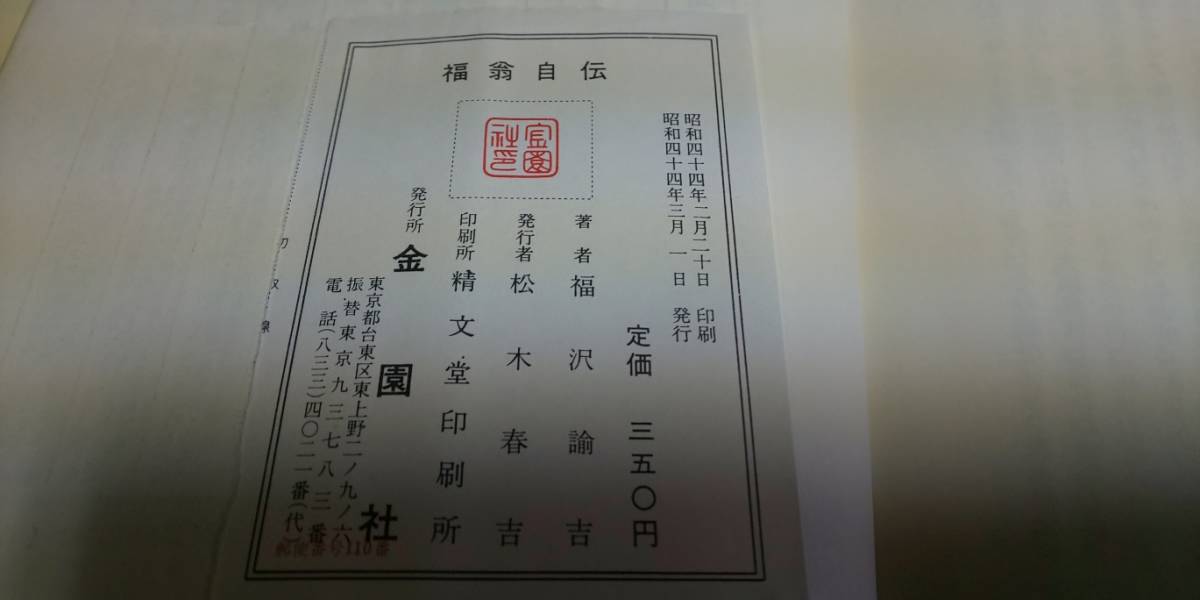 福翁自伝
昭和四十四年二月二十日 印刷
昭和四十四年三月 一日 発行
定価 三五〇円
著者 福沢諭吉
発行者 松木春吉
印刷所 精文堂印刷所
発行所 金園社
東京都台東区東上野二ノ九ノ六
振替東京九三七八三番
電話(八三三)四〇二一番(代)
郵便番号110番
金園
社印
切取線